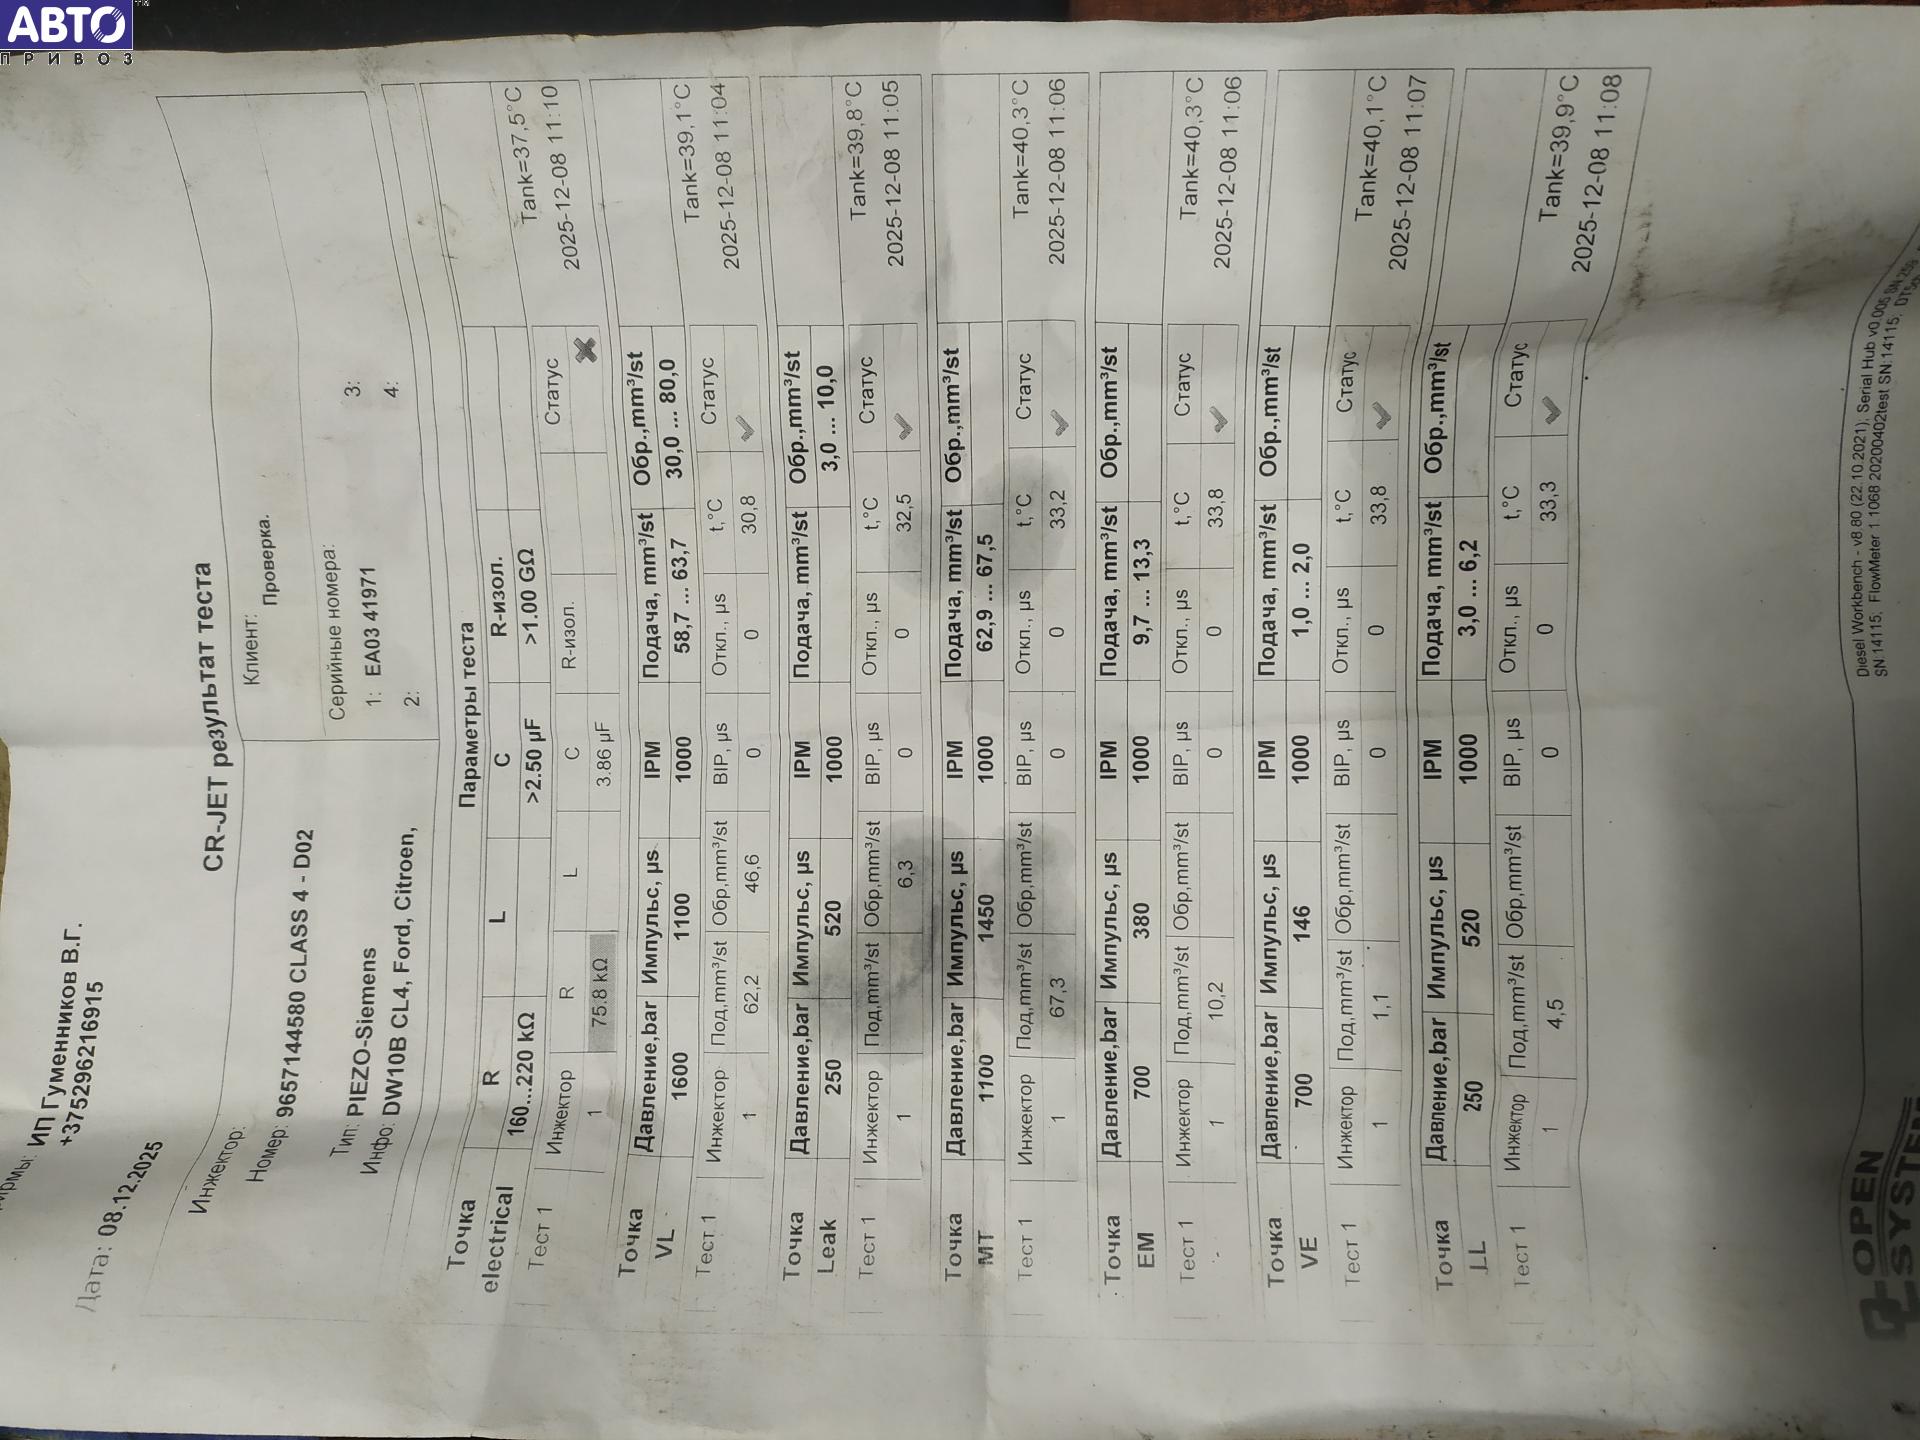 АВТО™
ПРИВОЗ
ИП Гуменников В.Г.
+375296216915
Дата: 08.12.2025
CR-JET результат теста
Инжектор:
Номер: 9657144580 CLASS 4 - D02
Тип: PIEZO-Siemens
Инфо: DW10B CL4, Ford, Citroen,
Клиент:
Проверка.
Серийные номера:
1: EA03 41971 3:
2: 4:
Параметры теста
Точка R L C R-изол. Tank=37,5°C
electrical 160...220 kΩ >2.50 µF >1.00 GΩ 2025-12-08 11:10
Тест 1 Инжектор R L C R-изол. Статус
1 75.8 kΩ 3.86 µF ✖
Точка Давление,bar Импульс, µs IPM Подача, mm³/st Обр.,mm³/st Tank=39,1°C
VL 1600 1100 1000 58,7 ... 63,7 30,0 ... 80,0 2025-12-08 11:04
Тест 1 Инжектор Под,mm³/st Обр,mm³/st BIP, µs Откл., µs t,°C Статус
1 62,2 46,6 0 0 30,8 ✔
Точка Давление,bar Импульс, µs IPM Подача, mm³/st Обр.,mm³/st Tank=39,8°C
Leak 250 520 1000 3,0 ... 10,0 2025-12-08 11:05
Тест 1 Инжектор Под,mm³/st Обр,mm³/st BIP, µs Откл., µs t,°C Статус
1 6,3 0 0 32,5 ✔
Точка Давление,bar Импульс, µs IPM Подача, mm³/st Обр.,mm³/st Tank=40,3°C
MT 1100 1450 1000 62,9 ... 67,5 2025-12-08 11:06
Тест 1 Инжектор Под,mm³/st Обр,mm³/st BIP, µs Откл., µs t,°C Статус
1 67,3 0 0 33,2 ✔
Точка Давление,bar Импульс, µs IPM Подача, mm³/st Обр.,mm³/st Tank=40,3°C
EM 700 380 1000 9,7 ... 13,3 2025-12-08 11:06
Тест 1 Инжектор Под,mm³/st Обр,mm³/st BIP, µs Откл., µs t,°C Статус
1 10,2 0 0 33,8 ✔
Точка Давление,bar Импульс, µs IPM Подача, mm³/st Обр.,mm³/st Tank=40,1°C
VE 700 146 1000 1,0 ... 2,0 2025-12-08 11:07
Тест 1 Инжектор Под,mm³/st Обр,mm³/st BIP, µs Откл., µs t,°C Статус
1 1,1 0 0 33,8 ✔
Точка Давление,bar Импульс, µs IPM Подача, mm³/st Обр.,mm³/st Tank=39,9°C
LL 250 520 1000 3,0 ... 6,2 2025-12-08 11:08
Тест 1 Инжектор Под,mm³/st Обр,mm³/st BIP, µs Откл., µs t,°C Статус
1 4,5 0 0 33,3 ✔
OPEN
Diesel Workbench - v8.80 (22.10.2021), Serial Hub v0.005
SN:14115; FlowMeter 1 1068 20200402test SN:14115;